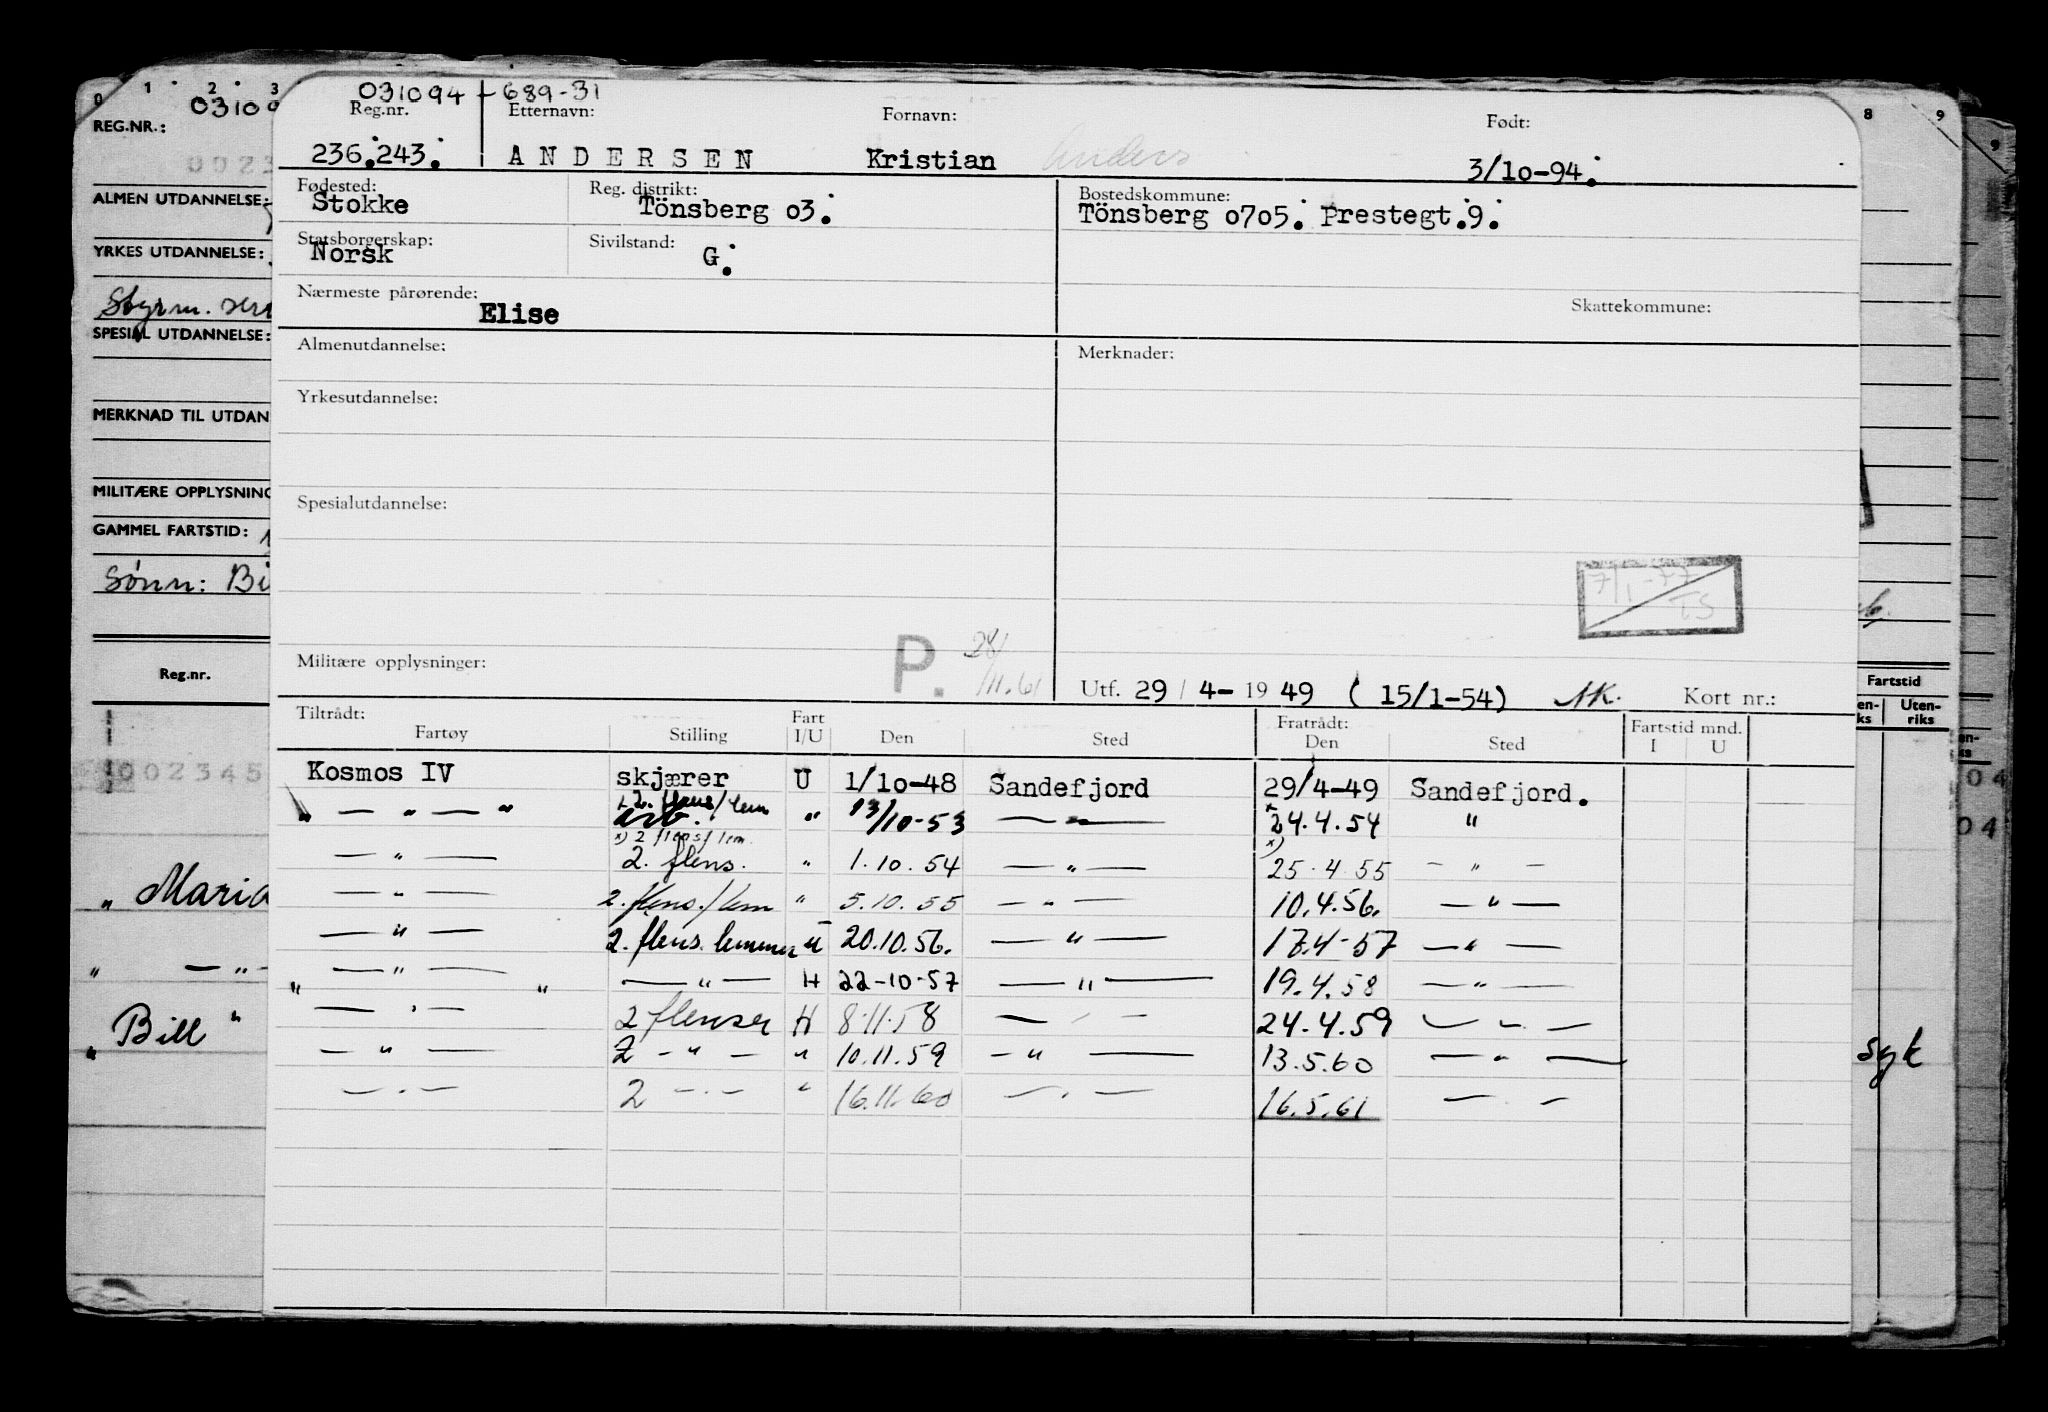 031094 - 689-31
Reg.nr. Etternavn: Fornavn: Født:
236.243. ANDERSEN Kristian Anders 3/10-94.
Fødested: Reg. distrikt: Bostedskommune:
Stokke Tönsberg 03. Tönsberg 0705. Prestegt.9.
Statsborgerskap: Sivilstand:
Norsk G.
Nærmeste pårørende: Skattekommune:
Elise
Almenutdannelse: Merknader:
Yrkesutdannelse:
Spesialutdannelse:
7/1-77
TS
Militære opplysninger: P. 28/11.61
Utf. 29/4-1949 (15/1-54) AK. Kort nr.:
Tiltrådt: Fart Fratrådt: Fartstid mnd.
Fartøy Stilling I/U Den Sted Den Sted I U
Kosmos IV skjærer U 1/10-48 Sandefjord 29/4-49 Sandefjord.
" — " — " 2. flens/lem arb. " 13/10-53 — " — x 24.4.54 "
x) 2 flens/lem.
— " — 2. flens. " 1.10.54 — " — x) 25.4.55 — " —
— " — 2. flens./lem " 5.10.55 — " — 10.4.56. — " —
— " — 2. flens. lemmer U 20.10.56. — " — 17.4-57 — " —
" — " — " — " — H 22-10-57 — " — 19.4.58 — " —
— " — 2 flenser H 8.11.58 — " — 24.4.59 — " —
— " — 2 — " — " 10.11.59 — " — 13.5.60 — " —
— " — 2 — " — " 16.11.60 — " — 16.5.61 — " —
0 1 2 3
0310
REG.NR.:
0023
ALMEN UTDANNELSE:
YRKES UTDANNELSE:
Styrm.
SPESIAL UTDANNELSE:
MERKNAD TIL UTDAN
MILITÆRE OPPLYSNING
GAMMEL FARTSTID:
Sönn: Bi
Reg.nr.
002345
" Maria
" — " —
" Bill "
8 9
9
Fartstid
en-ks Uten-riks
04
04
syk